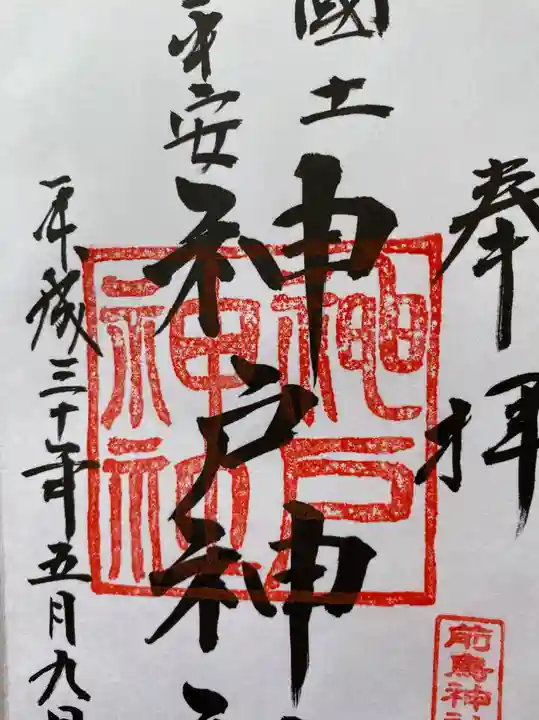 奉拝
國土
平安
神戸神
神戸
神社
平成三十年五月九日
前鳥神